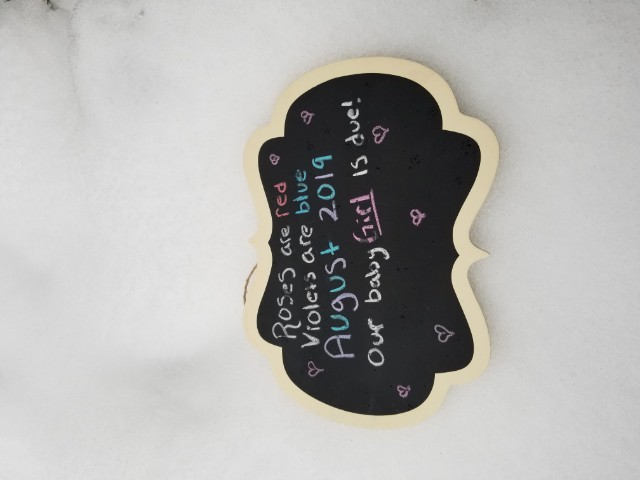 Roses are red
Violets are blue
August 2019
Our baby Girl is due!